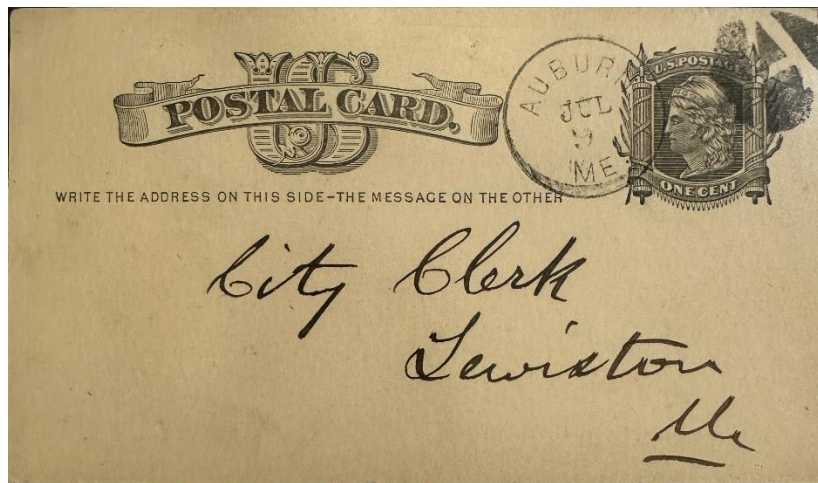 US
POSTAL CARD,
AUBURN
JUL
9
ME
U.S. POSTAGE
ONE CENT
WRITE THE ADDRESS ON THIS SIDE-THE MESSAGE ON THE OTHER
City Clerk
Lewiston
Me